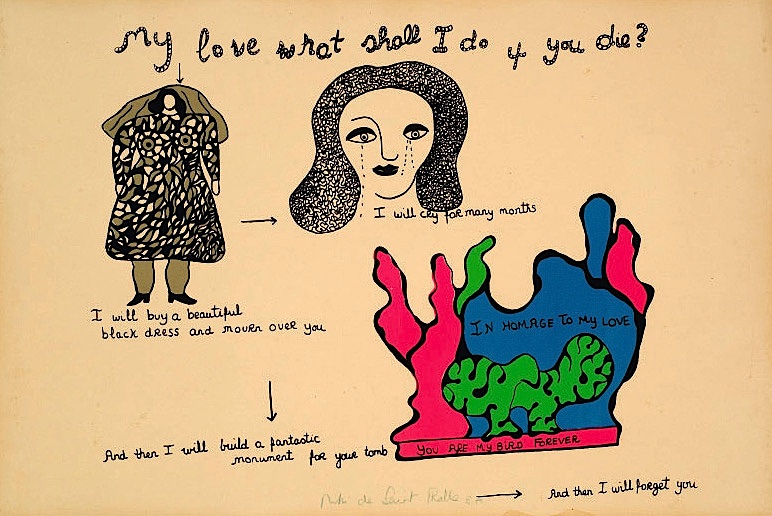 My love what shall I do if you die?
I will cry for many months
I will buy a beautiful
black dress and mourn over you
IN HOMAGE TO MY LOVE
And then I will build a fantastic
monument for your tomb
YOU ARE MY BIRD FOREVER
And then I will forget you
Niki de Saint Phalle